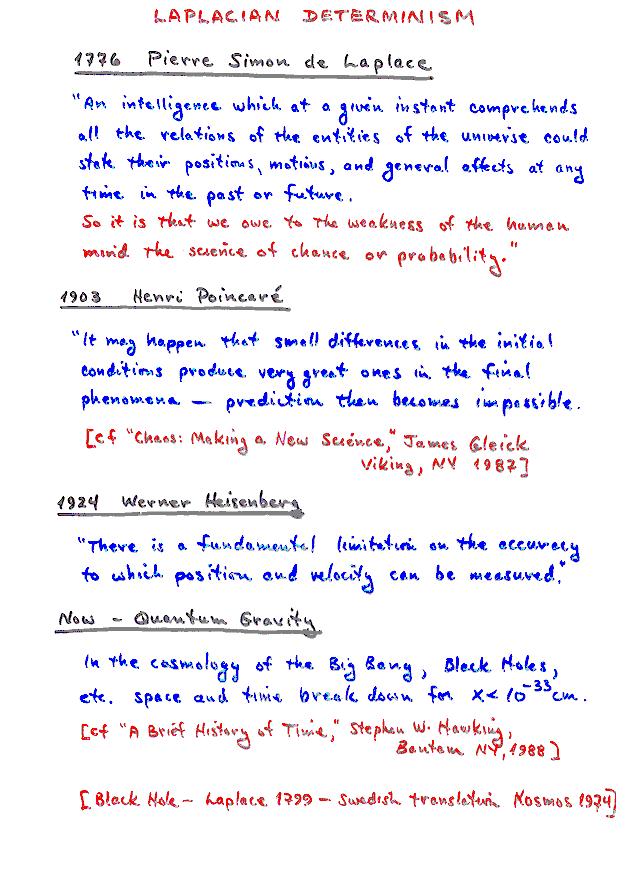 LAPLACIAN DETERMINISM
1776 Pierre Simon de Laplace
"An intelligence which at a given instant comprehends
all the relations of the entities of the universe could
state their positions, motions, and general affects at any
time in the past or future.
So it is that we owe to the weakness of the human
mind the science of chance or probability."
1903 Henri Poincaré
"It may happen that small differences in the initial
conditions produce very great ones in the final
phenomena — prediction then becomes impossible.
[cf "Chaos: Making a New Science," James Gleick
Viking, NY 1987]
1924 Werner Heisenberg
"There is a fundamental limitation on the accuracy
to which position and velocity can be measured."
Now - Quantum Gravity
In the cosmology of the Big Bang, Black Holes,
etc. space and time break down for x < 10⁻³³ cm.
[cf "A Brief History of Time," Stephen W. Hawking,
Bantam NY, 1988]
[Black Hole - Laplace 1799 - Swedish translation Kosmos 1974]